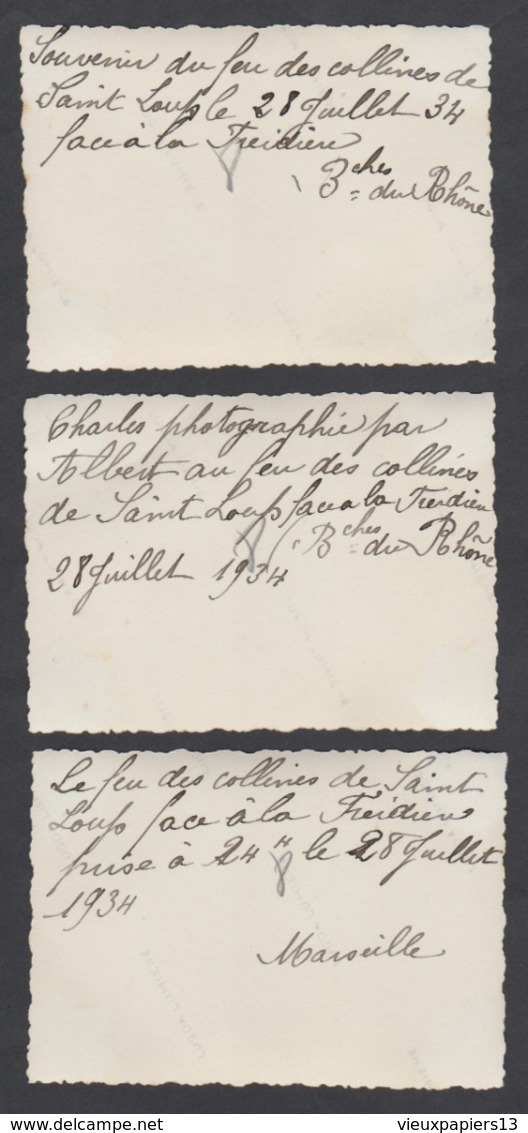 Souvenir du feu des collines de
Saint Loup le 28 Juillet 34
face à la Treidiere
Bches du Rhône
Charles photographie par
Albert au feu des collines
de Saint Loup face a la Treidien
(Bches du Rhône
28 Juillet 1934
8
Le feu des collines de Saint
Loup face à la Treidien
prise à 24 H le 28 Juillet
8
1934
Marseille
www.delcampe.net
vieuxpapiers13